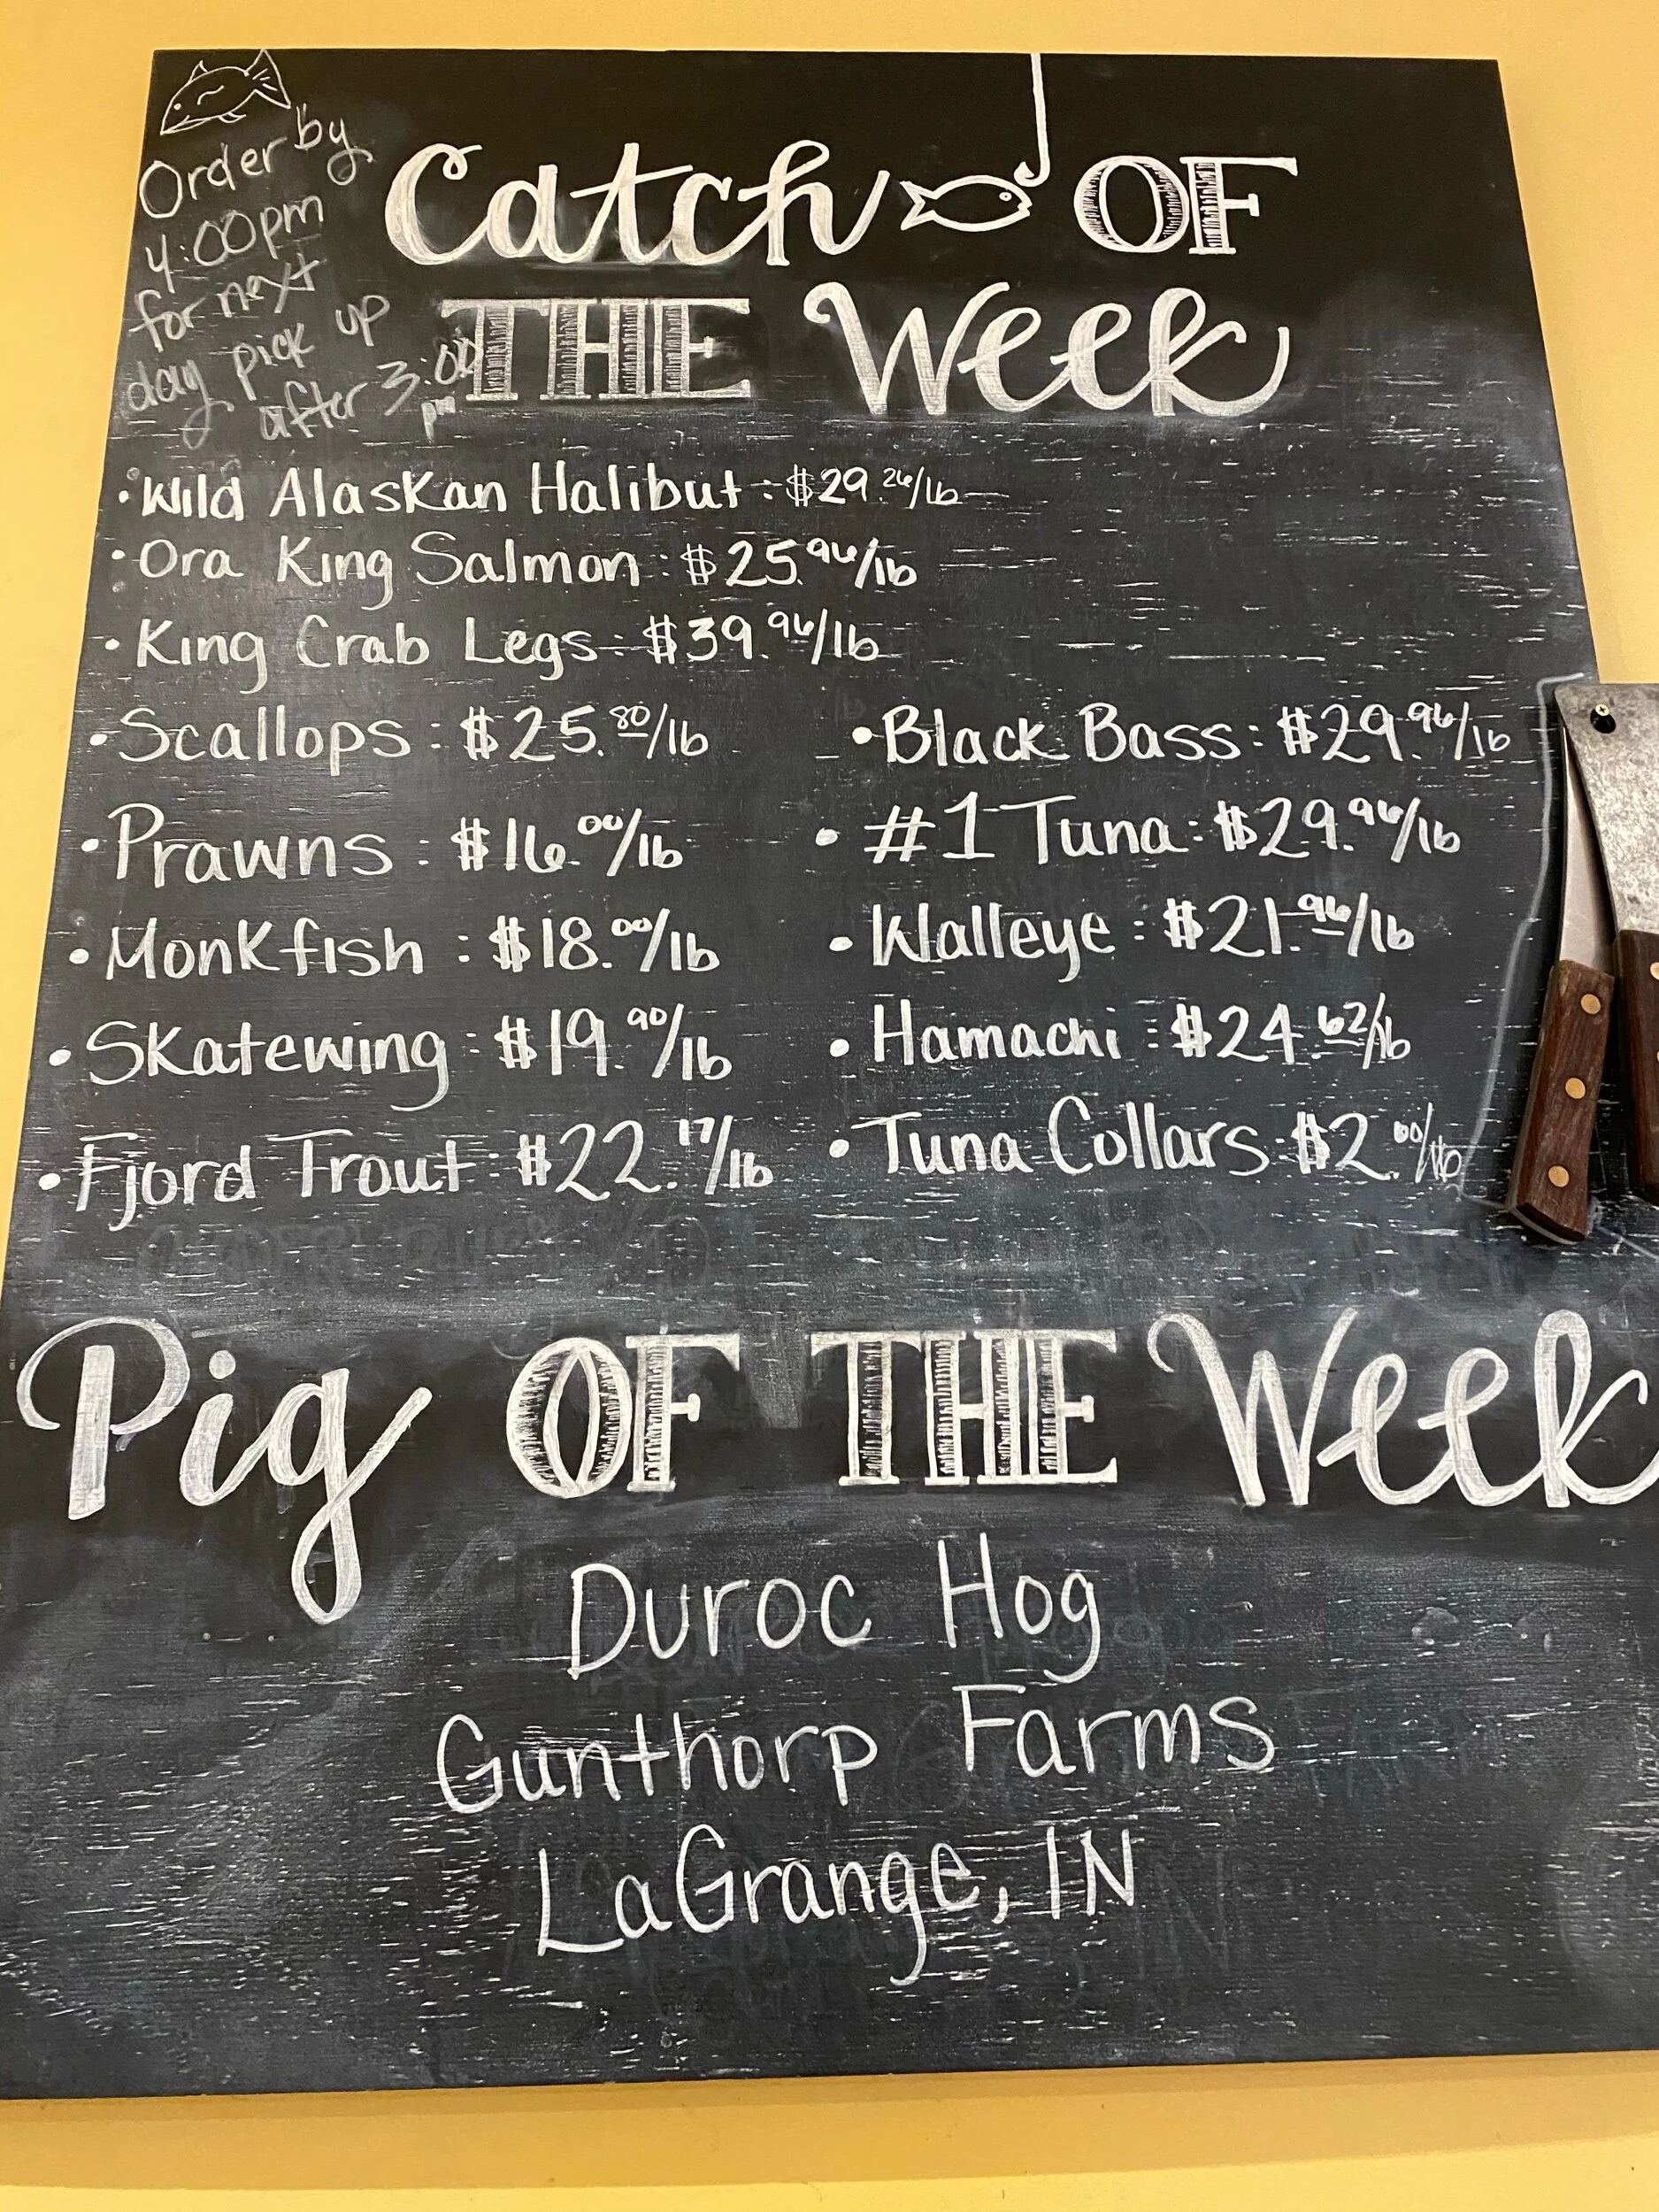 Order by
4:00pm
for next
day pick up
after 3:00
pm
Catch OF
THE Week
• Wild Alaskan Halibut: $29.26/lb
• Ora King Salmon: $25.96/lb
• King Crab Legs: $39.96/lb
• Scallops: $25.80/lb
• Prawns: $16.00/lb
• Monkfish: $18.00/lb
• Skatewing: $19.90/lb
• Fjord Trout: $22.17/lb
• Black Bass: $29.96/lb
• #1 Tuna: $29.96/lb
• Walleye: $21.96/lb
• Hamachi: $24.62/lb
• Tuna Collars: $2.00/lb
Pig OF THE Week
Duroc Hog
Gunthorp Farms
LaGrange, IN